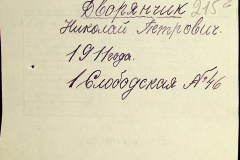 Дворянчик 215
Николай Петрович.
1911 года.
1 Слободская № 46